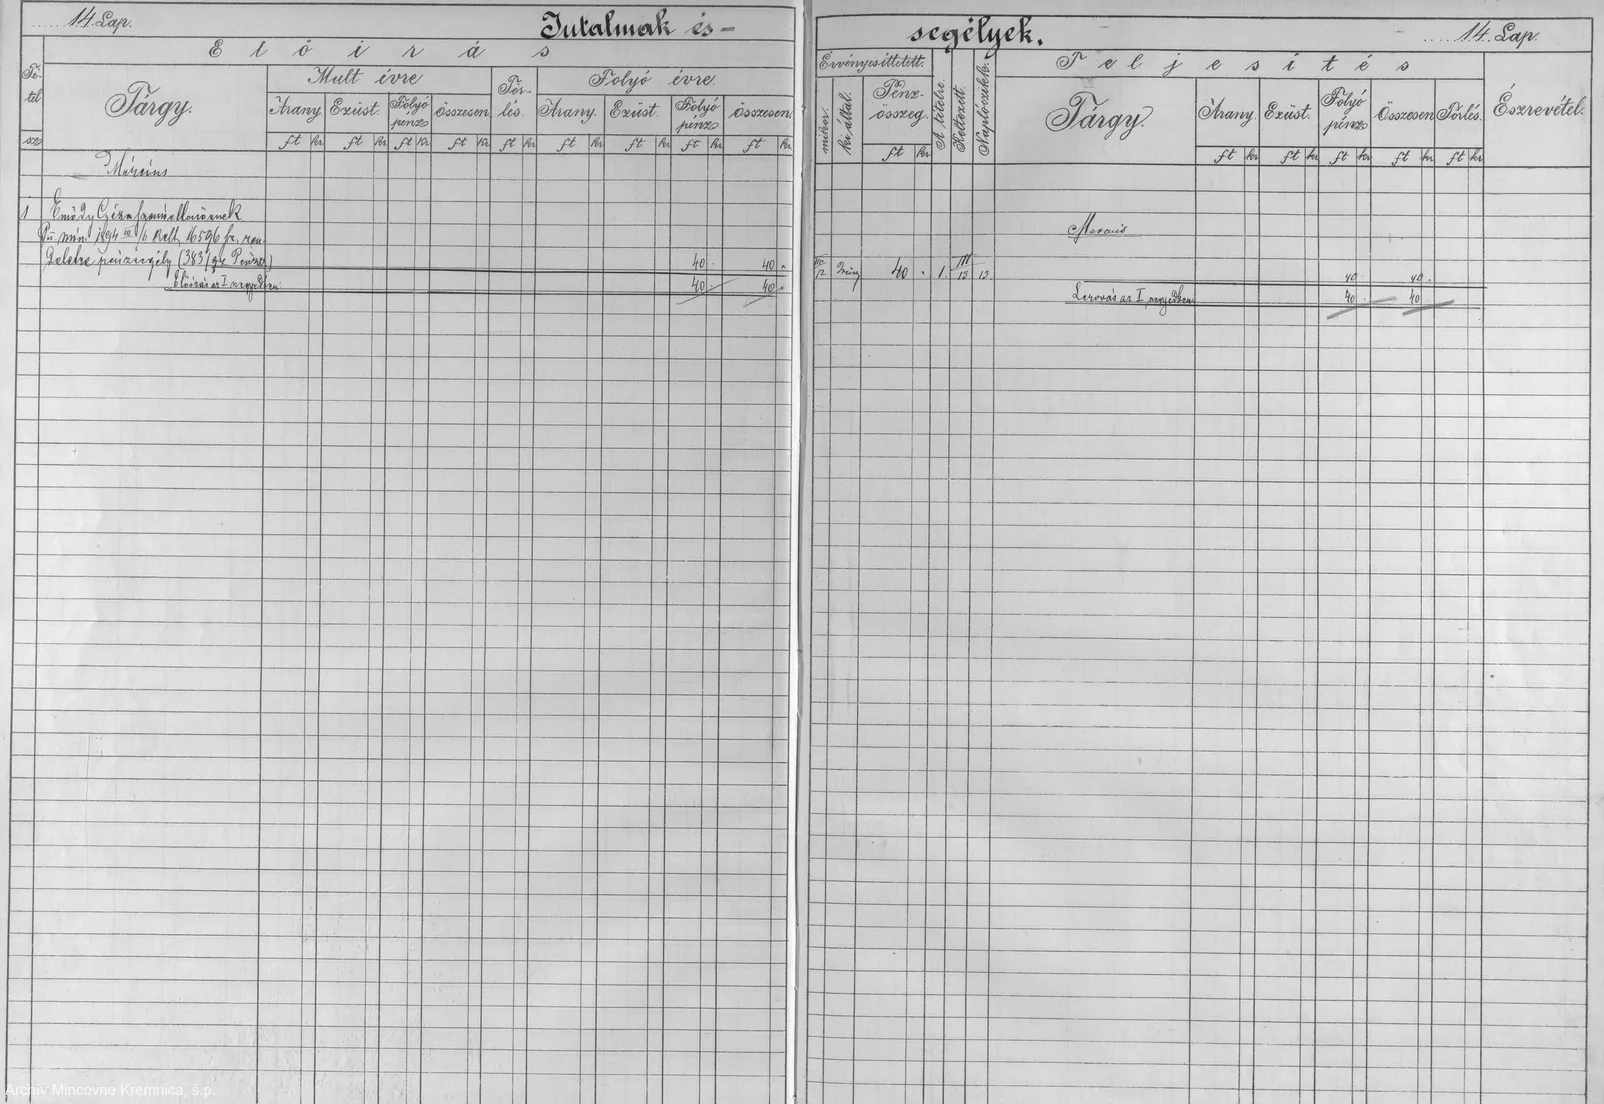 14. Lap.
Jutalmak és-
Tétel
sz.
Előirás
Tárgy.
Mult évre
Törlés.
Folyó évre.
Arany
Ezüst.
Folyó pénz
Összesen
Arany.
Ezüst.
Folyó pénz
Összesen.
ft kr ft kr ft kr ft kr ft kr ft kr ft kr ft kr ft kr
Márczius
1 Emődy Géza
Pü. min. 1894 III/6 kelt, 16596 sz.
(383/94 40 . 40 .
Előirás az I. negyedben: 40 . 40 .
segélyek.
14. Lap.
Érvényesittetett.
mikor.
ki által.
Pénzösszeg.
ft kr
A tételre.
Keltezett.
Naplóczikk.
Teljesités
Tárgy.
Arany.
Ezüst.
Folyó pénz
Összesen
Törlés.
Észrevétel.
ft kr ft kr ft kr ft kr ft kr
III/12 40 . 1. III/13 13. 40 40 .
Lerovás az I. negyedben 40 . 40
Archív Mincovne Kremnica, š.p.